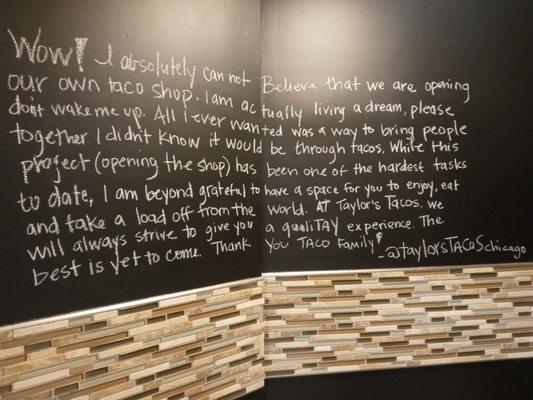 Wow! I absolutely can not Believe that we are opening
our own taco shop. I am actually living a dream, please
don't wake me up. All I ever wanted was a way to bring people
together. I didn't know it would be through tacos. While this
project (opening the shop) has been one of the hardest tasks
to date, I am beyond grateful to have a space for you to enjoy, eat
and take a load off from the world. At Taylor's Tacos, we
will always strive to give you a qualiTAY experience. The
best is yet to come. Thank you TACO Family!
-@taylorsTACOSchicago